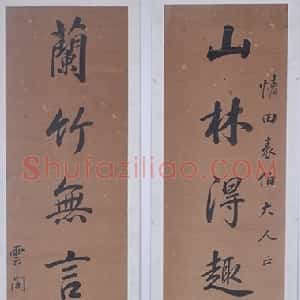 情田表伯大人正
山林得趣
蘭竹無言
雲閣
Shufaziliao.com